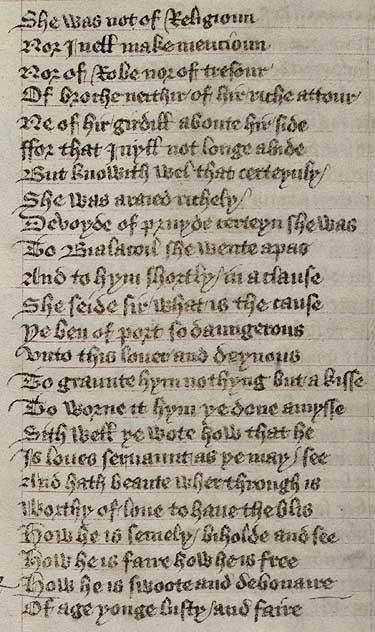 She was not of Religioun
Nor I nell make mencioun
Nor of Robe nor of tresour
Of broche neithir of hir riche attour
Ne of hir girdill aboute hir side
ffor that I nyll not longe abide
But knowith wel that certeynly
She was araied richely
Devoyde of pruyde certeyn she was
To Bialacoil she wente apas
And to hym shortly / in a clause
She seide sir what is the cause
Ye ben of port so daungerous
Vnto this louer and deynous
To graunte hym nothyng but a kisse
To worne it hym ye done amysse
Sith well ye wote how that he
Is loues seruaunt as ye may / see
And hath beaute wher through is
Worthy of loue to haue the blis
How he is semely / biholde and see
How he is faire how he is free
How he is swoote and debonaire
Of age yonge lusty / and faire